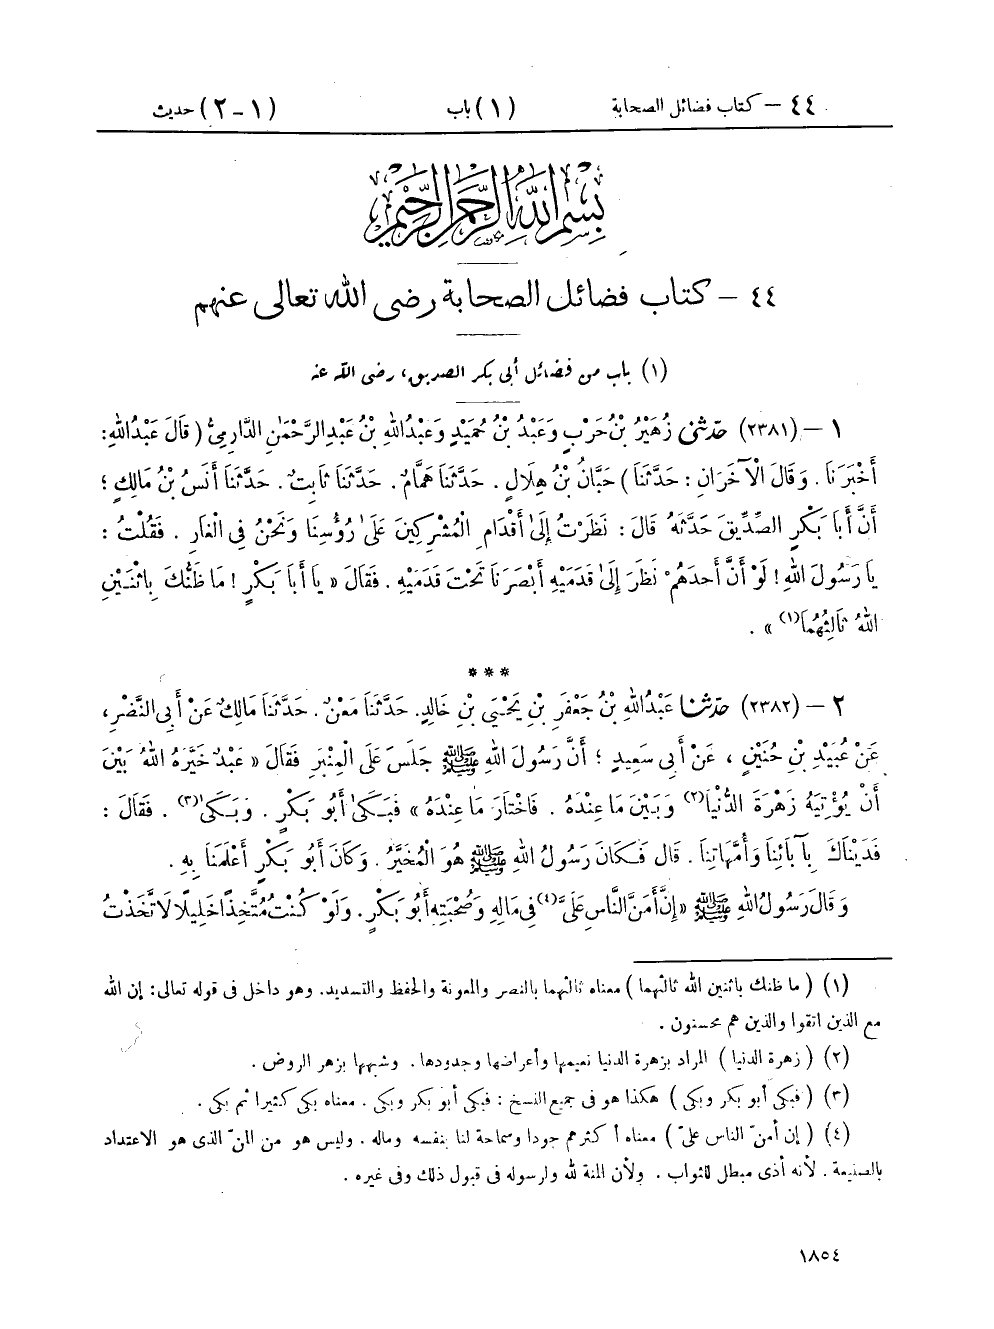 ٤٤ – كتاب فضائل الصحابة (١) باب (١ – ٢) حديث
بسم الله الرحمن الرحيم
٤٤ – كتاب فضائل الصحابة رضى الله تعالى عنهم
(١) باب من فضائل أبى بكر الصديق، رضى الله عنه
١ – (٢٣٨١) حدّثنى زُهَيْرُ بْنُ حَرْبٍ وَعَبْدُ بْنُ حُمَيْدٍ وَعَبْدُ اللهِ بْنُ عَبْدِ الرَّحْمَٰنِ الدَّارِمِىُّ (قَالَ عَبْدُ اللهِ:
أَخْبَرَنَا. وَقَالَ الْآخَرَانِ: حَدَّثَنَا) حَبَّانُ بْنُ هِلَالٍ. حَدَّثَنَا هَمَّامٌ. حَدَّثَنَا ثَابِتٌ. حَدَّثَنَا أَنَسُ بْنُ مَالِكٍ؛
أَنَّ أَبَا بَكْرٍ الصِّدِّيقَ حَدَّثَهُ قَالَ: نَظَرْتُ إِلَىٰ أَقْدَامِ الْمُشْرِكِينَ عَلَىٰ رُؤُسِنَا وَنَحْنُ فِى الْغَارِ. فَقُلْتُ:
يَا رَسُولَ اللهِ! لَوْ أَنَّ أَحَدَهُمْ نَظَرَ إِلَىٰ قَدَمَيْهِ أَبْصَرَنَا تَحْتَ قَدَمَيْهِ. فَقَالَ « يَا أَبَا بَكْرٍ! مَا ظَنُّكَ بِاثْنَيْنِ
اللهُ ثَالِثُهُمَا(١) ».
* * *
٢ – (٢٣٨٢) حدّثنا عَبْدُ اللهِ بْنُ جَعْفَرِ بْنِ يَحْيَىٰ بْنِ خَالِدٍ. حَدَّثَنَا مَعْنٌ. حَدَّثَنَا مَالِكٌ عَنْ أَبِى النَّضْرِ،
عَنْ عُبَيْدِ بْنِ حُنَيْنٍ، عَنْ أَبِى سَعِيدٍ؛ أَنَّ رَسُولَ اللهِ ﷺ جَلَسَ عَلَى الْمِنْبَرِ فَقَالَ « عَبْدٌ خَيَّرَهُ اللهُ بَيْنَ
أَنْ يُؤْتِيَهُ زَهْرَةَ الدُّنْيَا(٢) وَبَيْنَ مَا عِنْدَهُ. فَاخْتَارَ مَا عِنْدَهُ » فَبَكَىٰ أَبُو بَكْرٍ. وَبَكَىٰ(٣). فَقَالَ:
فَدَيْنَاكَ بِآبَائِنَا وَأُمَّهَاتِنَا. قَالَ فَكَانَ رَسُولُ اللهِ ﷺ هُوَ الْمُخَيَّرُ. وَكَانَ أَبُو بَكْرٍ أَعْلَمَنَا بِهِ.
وَقَالَ رَسُولُ اللهِ ﷺ « إِنَّ أَمَنَّ النَّاسِ عَلَىَّ(٤) فِى مَالِهِ وَصُحْبَتِهِ أَبُو بَكْرٍ. وَلَوْ كُنْتُ مُتَّخِذًا خَلِيلًا لَاتَّخَذْتُ
(١) (ما ظنك باثنين الله ثالثهما) معناه ثالثهما بالنصر والمعونة والحفظ والتسديد. وهو داخل فى قوله تعالى: إن الله
مع الذين اتقوا والذين هم محسنون.
(٢) (زهرة الدنيا) المراد بزهرة الدنيا نعيمها وأعراضها وحدودها. وشبهها بزهر الروض.
(٣) (فبكى أبو بكر وبكى) هكذا هو فى جميع النسخ: فبكى أبو بكر وبكى. معناه بكى كثيرا ثم بكى.
(٤) (إن أمنّ الناس علىّ) معناه أكثرهم جودا وسماحة لنا بنفسه وماله. وليس هو من المنّ الذى هو الاعتداد
بالصنيعة. لأنه أذى مبطل للثواب. ولأن المنة لله ولرسوله فى قبول ذلك وفى غيره.
١٨٥٤